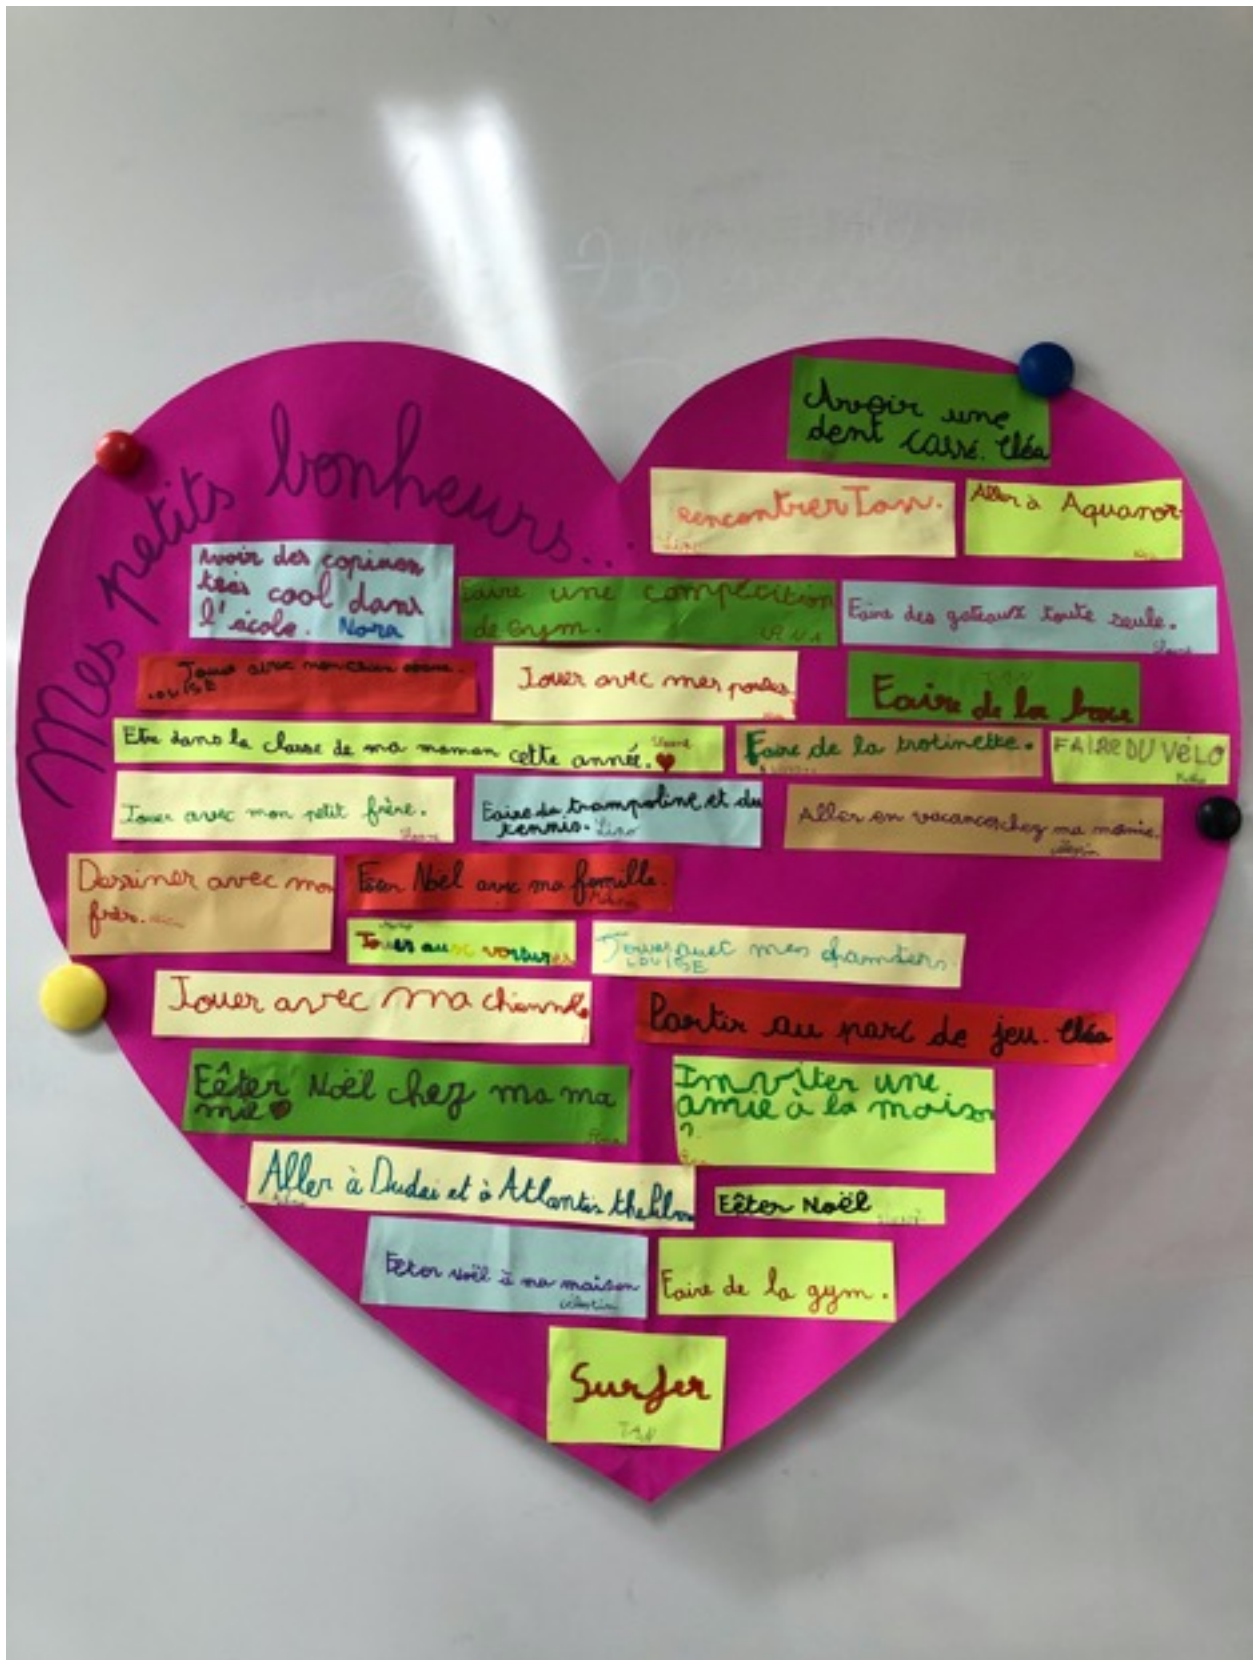 Mes petits bonheurs...
Avoir une
dent cassé. Cléa
rencontrer Ian.
Lino
Aller à Aquanor
Avoir des copines
très cool dans
l'école. Nora
Faire une compétition
de Gym.
Faire des gateaux toute seule.
Jouer avec mon
LOUISE
Jouer avec mes poules.
Faire de la boue
Etre dans la classe de ma maman cette année.
Faire de la trotinette.
FAIRE DU VÉLO
Jouer avec mon petit frère.
Faire du trampoline et du
tennis. Lino
Aller en vacances chez ma mamie.
Dessiner avec mon
frère.
Feter Noël avec ma famille.
Jouer aux voitures
Jouer avec mes hamsters.
LOUISE
Jouer avec ma chienne.
Partir au parc de jeu. Cléa
Fêter Noël chez ma ma
mie
Inviter une
amie à la maison
?
Aller à Dudaï et à Atlantis the
Fêter Noël
Feter Noël à ma maison
Célestin
Faire de la gym.
Surfer
IAN